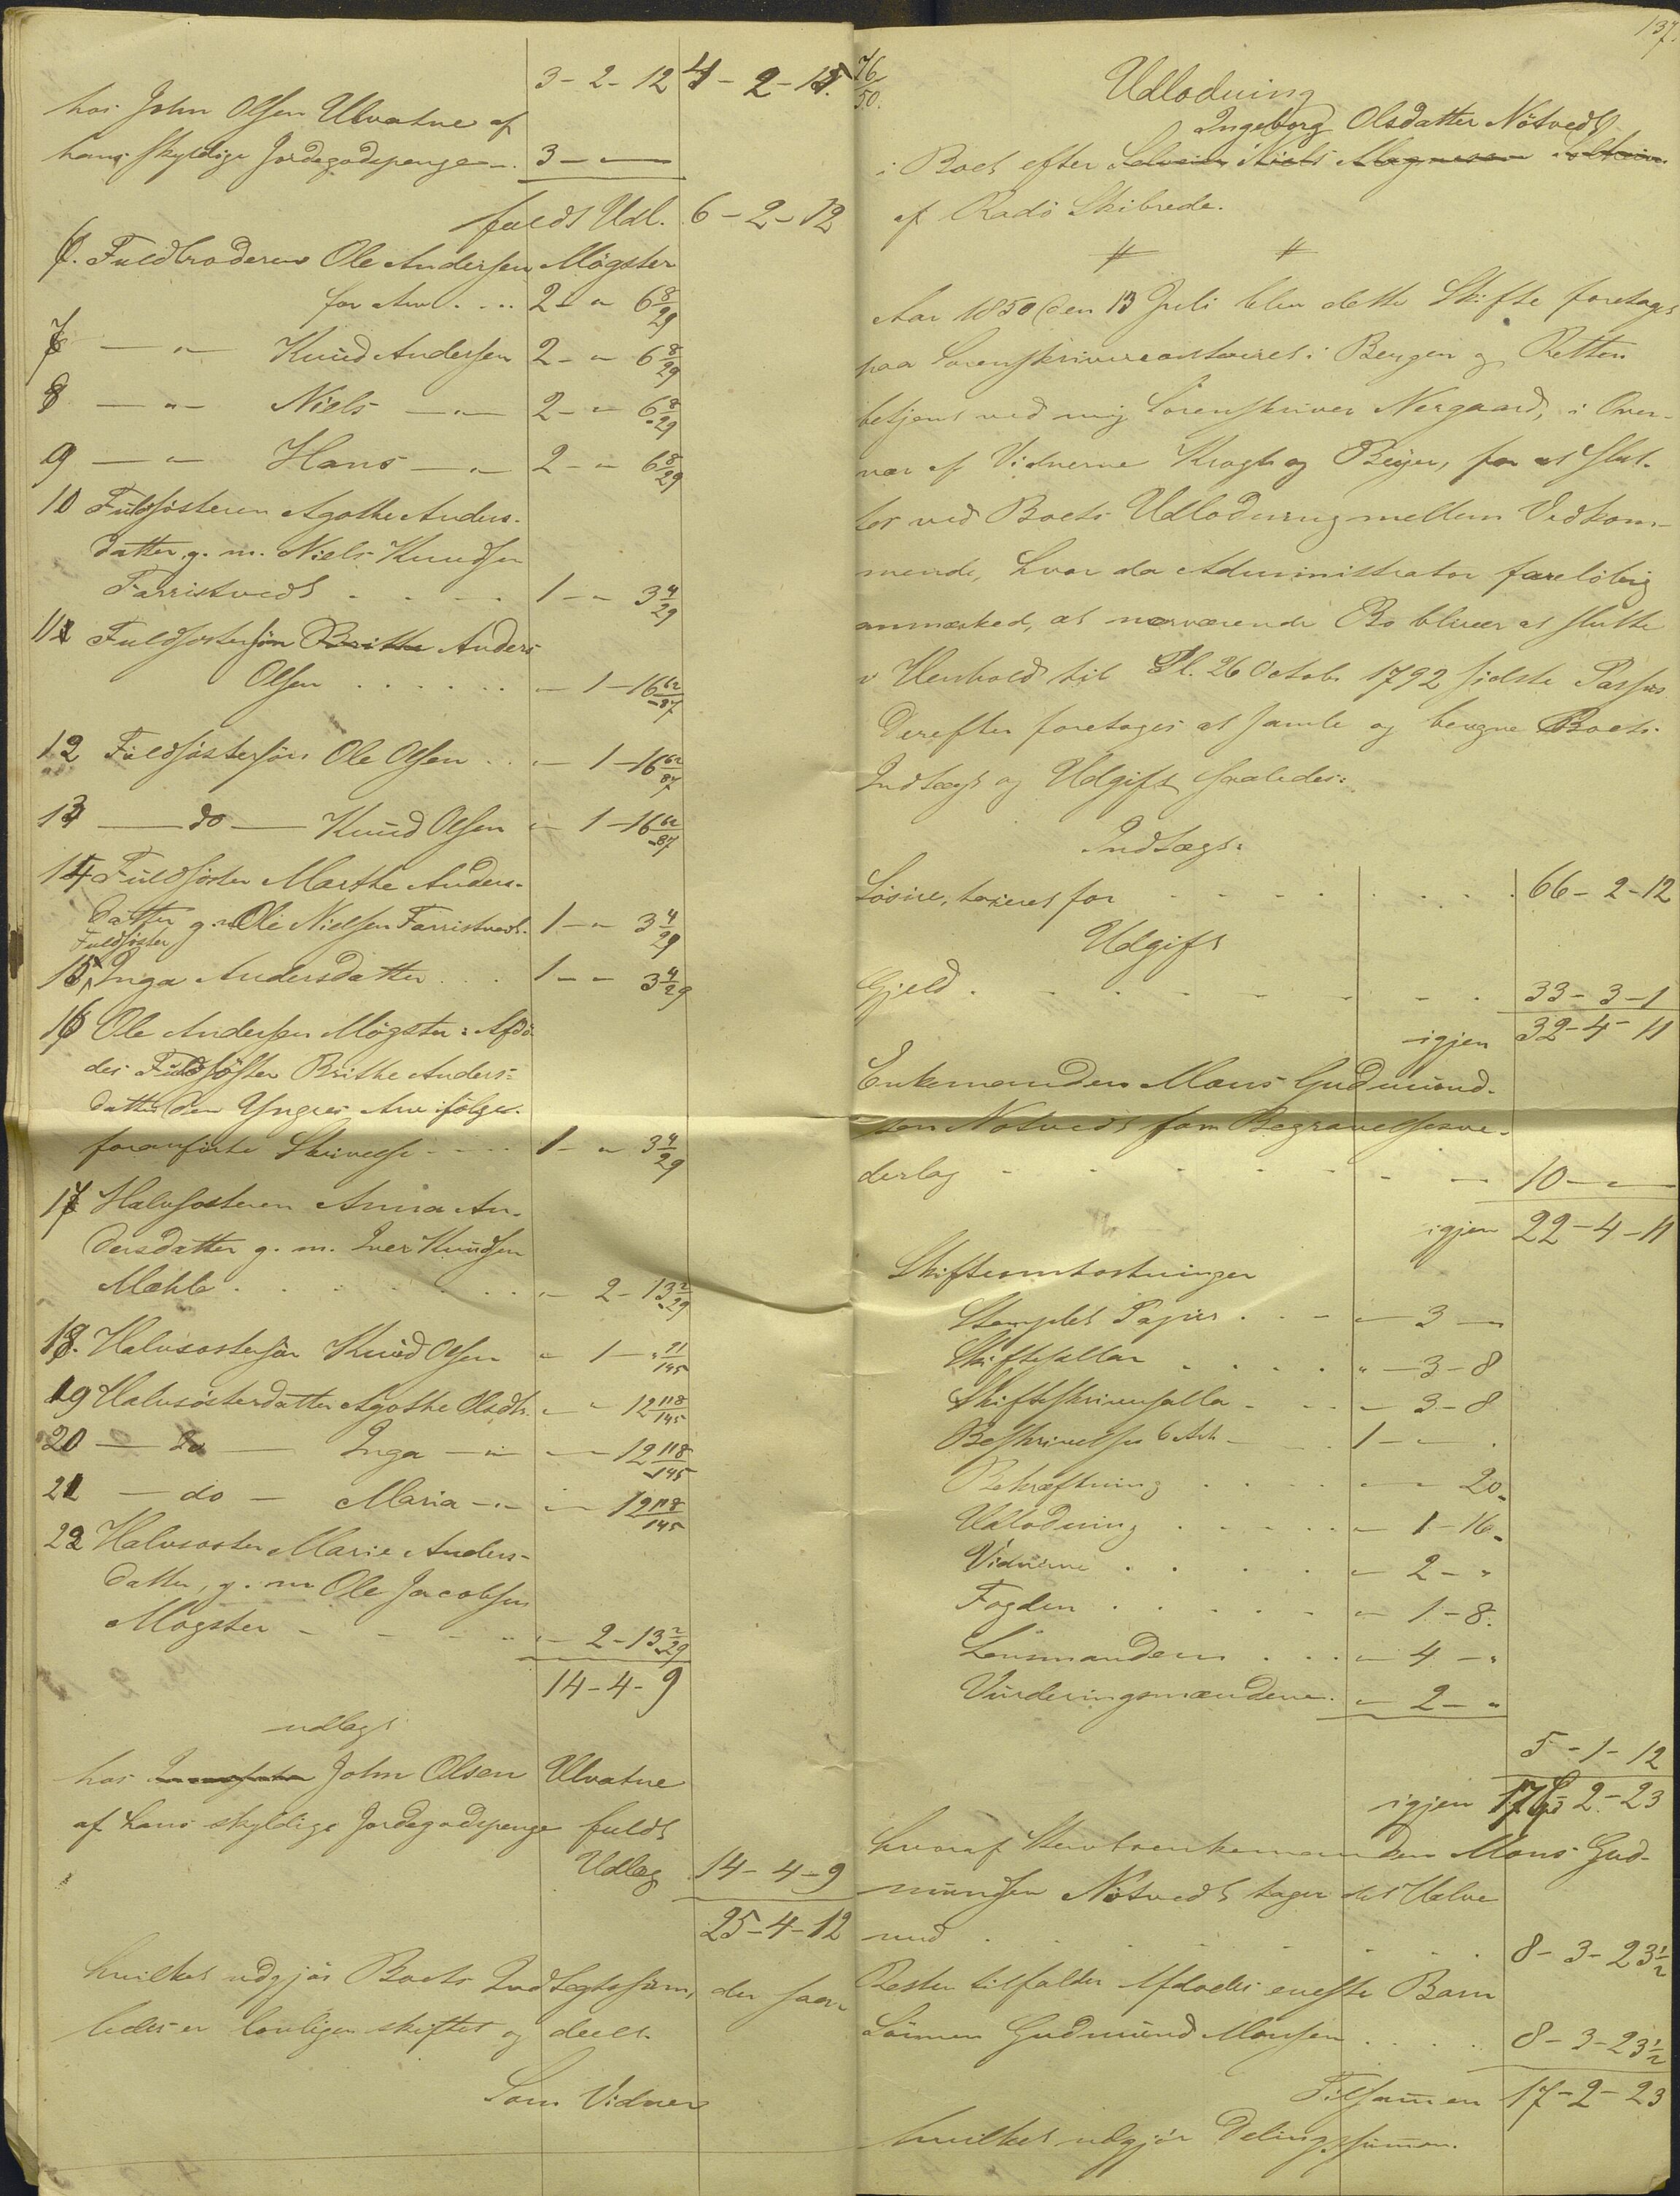 3 - 2 - 12 4 - 2 - 12.
hos John Olsen Ulvatne af
hans skyldige Jordegodspenge 3 - " -
fuldt Udl. 6 - 2 - 12
6. Fuldbroderen Ole Andersen Mögster
for Arv . . . . 2 - " 6 8/29
7 — " — Knud Andersen 2 - " 6 8/29
8 — " — Niels — " — 2 - " 6 8/29
9 — " — Hans — " — 2 - " 6 8/29
10 Fuldsösteren Agothe Anders-
datter, g. m. Niels Knudsen
Farristvedt . . . . 1 - " 3 4/29
11 Fuldsöstersön Brithe Anders
Olsen . . . . . . " - 1 - 16 62/87
12 Fuldsöstersön Ole Olsen . . " - 1 - 16 62/87
13 — do — Knud Olsen " - 1 - 16 62/87
14 Fuldsöster Marthe Anders-
datter g. m. Ole Nielsen Farristvedt. 1 - " 3 4/29
Fuldsöster
15 Inga Andersdatter . . . 1 - " 3 4/29
16 Ole Andersen Mögster: Afdö-
des Fuldsöster Brithe Anders-
datter den Yngres Arv ifölge
foranförte Skrivelse . . . . 1 - " 3 4/29
17 Halvsösteren Anna An-
dersdatter g. m. Iver Knudsen
Mæhle . . . . . . . " - 2 - 13 2/29
18. Halvsöstersön Knud Olsen " - 1 - " 91/145
19 Halvsösterdatter Agothe Olsdtr. " - " 12 118/145
20 — do — Inga — " — " - " 12 118/145
21 — do — Maria — " — " - " 12 118/145
22 Halvsöster Marie Anders-
datter, g. m. Ole Jacobsen
Mögster - - - - " - 2 - 13 2/29
14 - 4 - 9
udlagt
hos John Olsen Ulvatne
af hans skyldige Jordegodspenge fuldt
Udlæg 14 - 4 - 9
25 - 4 - 12
hvilket udgjör Boets Indtægtssum, der saa-
ledes er lovligen skiftet og deelt.
Som Vidner
137.
76/50.
Udlodning
Ingeborg Olsdatter Nötvedt
i Boet efter Niels Magnesen
af Radö Skibrede.
Aar 1850 den 13 Juli blev dette Skifte foretaget
paa Sorenskrivercontoiret i Bergen og Retten
betjent ved mig Sorenskriver Nergaard, i Over-
vær af Vidnerne Krogh og Beyer, for at slut-
tes ved Boets Udlodning mellem Vedkom-
mende, hvor da Administrator foreløbig
anmærked, at nærværende Bo bliver at slutte
i Henhold til Pl. 26 Octob. 1792 sidste Passus
Derefter foretoges at samle og beregne Boets
Indtægt og Udgift saaledes:
Indtægt:
Lösöre, taxeret for . . . . . . . 66 - 2 - 12
Udgift
Gjeld . . . . . . . 33 - 3 - 1
igjen 32 - 4 - 11
Enkemanden Mons Gudmund-
sen Nötvedt som Begravelsesve-
derlag - - - - - - 10 - " -
igjen 22 - 4 - 11
Skifteomkostninger
Stemplet Papir . . - " - 3 -
Skiftesallar . . . . " - 3 - 8
Skifteskriversalla - - - " - 3 - 8
Beskrivelse 6 Ark - - . 1 - " - .
Bekræftning . . . . " - " 20.
Udlodning . . . . . " - 1 - 16.
Vidnerne . . . . . " - 2 - "
Fogden . . . . . " - 1 - 8.
Lensmanden . . . " - 4 - "
Vurderingsmændene. " - 2 - "
5 - 1 - 12
igjen 17 - 2 - 23
hvoraf Stervboenkemanden Mons Gud-
mundsen Nötvedt tager det Halve
med . . . . . . . 8 - 3 - 23 1/2
Resten tilfalder Afdødes eneste Barn
Sönnen Gudmund Monsen . . . . 8 - 3 - 23 1/2
Tilsammen 17 - 2 - 23
hvilket udgjör Delingssummen.